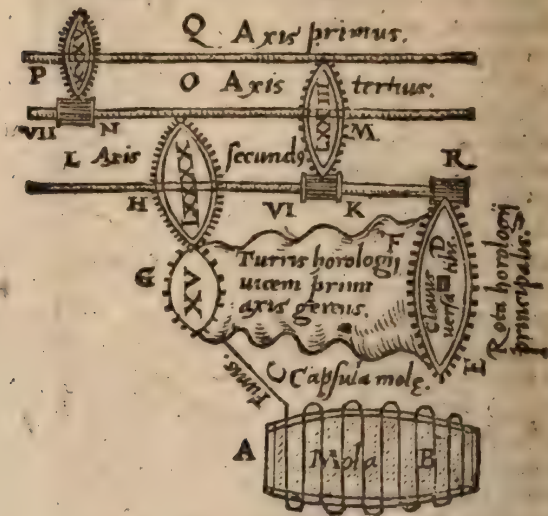 Q Axis primus.
P
O Axis tertius.
VII N M.
L Axis secundꝰ R
H VI K
F
G Turris horologij
uicem primi
axis gerens.
XV
D
Clauus
uersa tilis.
E
Rota horologij
principalis.
Funis.
C Capsula molę.
A Mola B